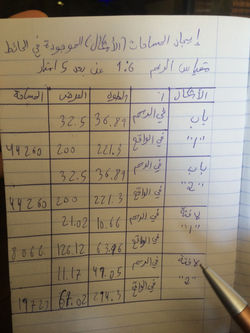 إيجاد المساحات (الأشكال) الموجودة في الحائط
مقياس الرسم 1:6 عن بعد 5 امتار
الأشكال الطول العرض المساحة
باب "1" في الرسم 36.89 32.5
في الواقع 221.3 200 44260
باب "2" في الرسم 36.89 32.5
في الواقع 221.3 200 44260
لافتة "1" في الرسم 10.66 21.02
في الواقع 63.96 126.12 8066
لافتة "2" في الرسم 49.05 11.17
في الواقع 294.3 67.02 19723